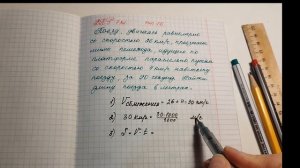 Поезд, двигаясь равномерно
со скоростью 26 км/ч, проезжает
мимо пешехода, идущего по
платформе параллельно путям
со скоростью 4 км/ч навстречу
поезду, за 90 секунд. Найти
длину поезда в метрах.
1) Vсближения = 26 + 4 = 30 км/ч
2) 30 км/ч = 30·1000 / 3600 м/с
3) S = V · t =